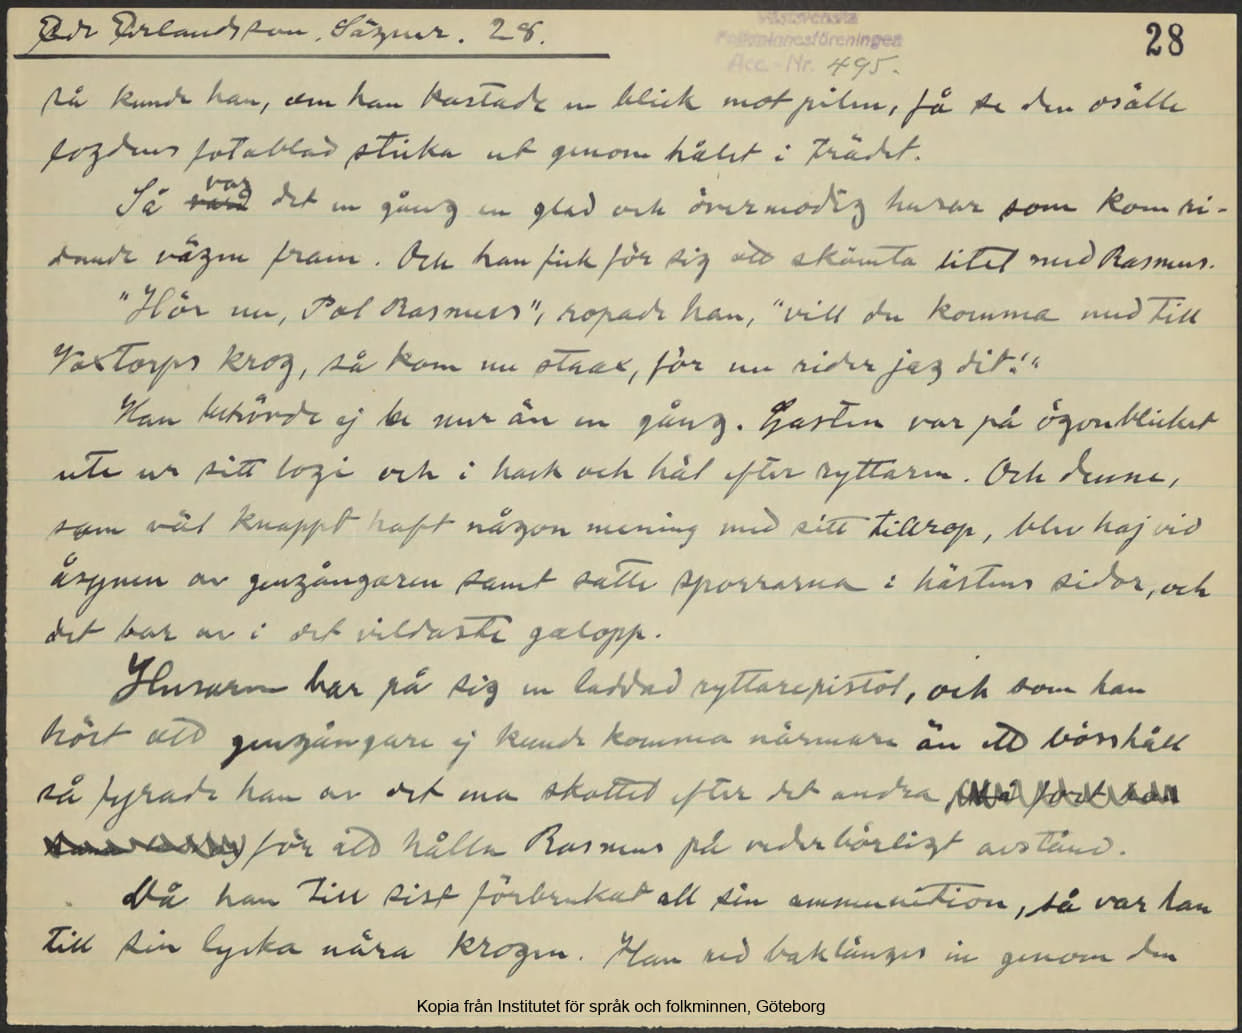 Edv Erlandsson. Sägner. 28.
Västsvenska
Folkminnesföreningen
Acc.-Nr. 495.
28
så kunde han, om han kastade en blick mot pilen, få se den osälle
fogdens fotablad sticka ut genom hålet i trädet.
Så var det en gång en glad och övermodig husar som kom ri-
dande vägen fram. Och han fick för sig att skämta litet med Rasmus.
"Hör nu, Pol Rasmus", ropade han, "vill du komma med till
Vaxtorps krog, så kom nu strax, för nu rider jag dit!"
Han behövde ej be mer än en gång. Gasten var på ögonblicket
ute ur sitt logi och i hack och häl efter ryttaren. Och denne,
som väl knappt haft någon mening med sitt tillrop, blev haj vid
åsynen av gengångaren samt satte sporrarna i hästens sidor, och
det bar av i det vildaste galopp.
Husaren bar på sig en laddad ryttarepistol, och som han
hört att gengångare ej kunde komma närmare än ett bösshåll
så fyrade han av det ena skottet efter det andra
för att hålla Rasmus på vederbörligt avstånd.
Då han till sist förbrukat all sin ammunition, så var han
till sin lycka nära krogen. Han red baklänges in genom den
Kopia från Institutet för språk och folkminnen, Göteborg